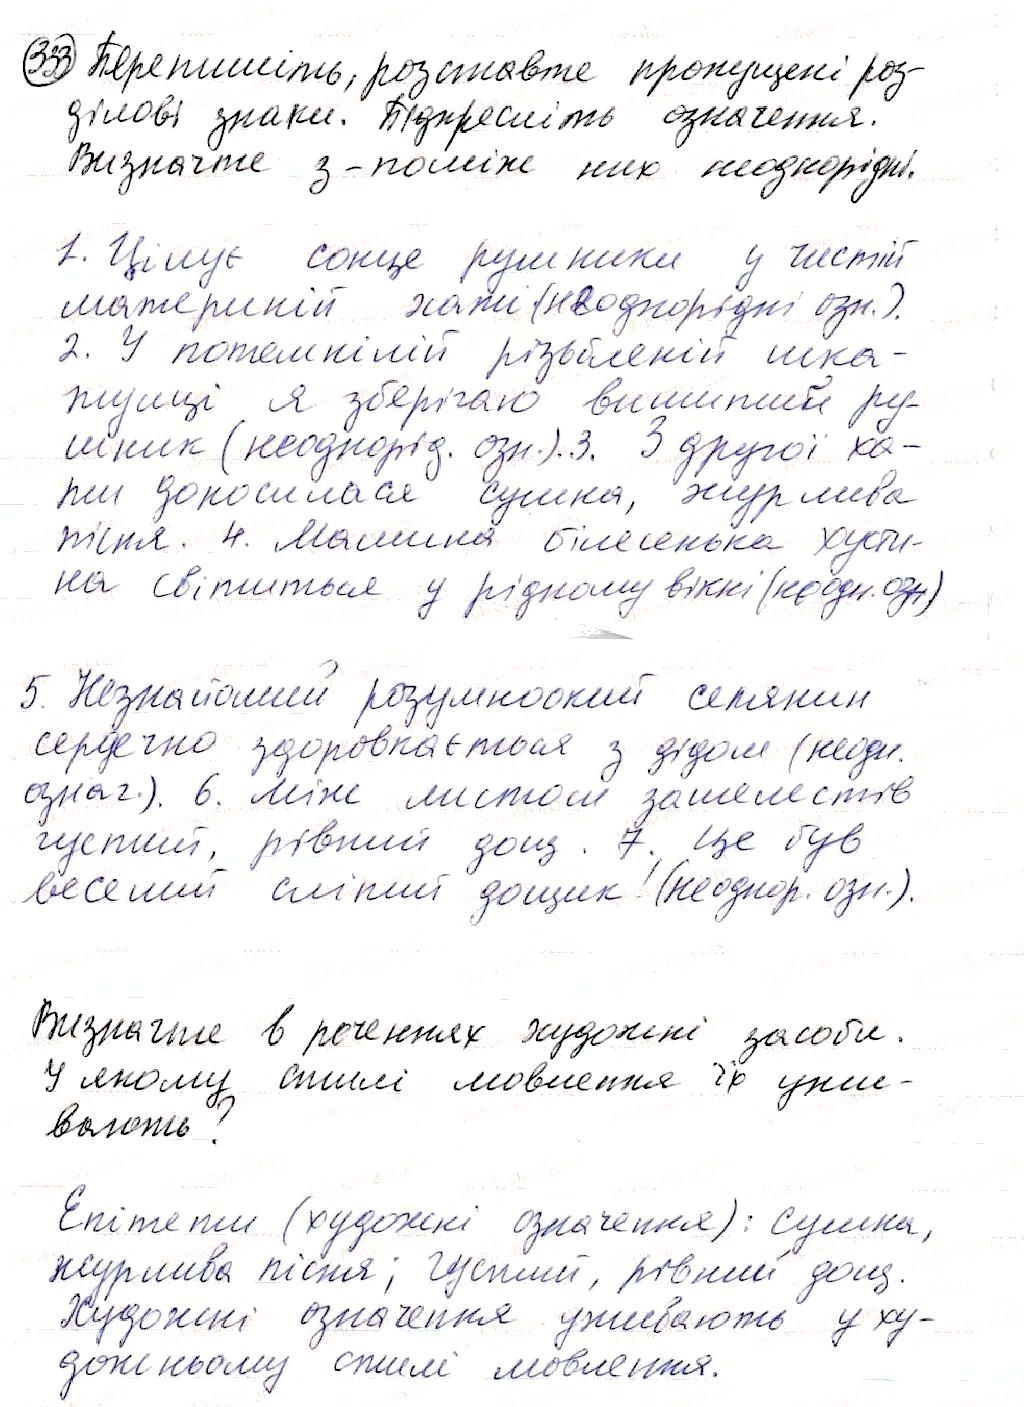 333 Перепишіть, розставте пропущені роз-
ділові знаки. Підкресліть означення.
Визначте з-поміж них неоднорідні.
1. Цілує сонце рушники у чистій
материній хаті (неоднорідні озн.).
2. У потемнілій різьбленій шка-
тулці я зберігаю вишитий ру-
шник (неоднорід. озн.). 3. З другої ха-
ти доносилася сумна, журлива
пісня. 4. Мамина білесенька хусти-
на світиться у рідному вікні (неодн. озн)
5. Незнайомий розумноокий селянин
сердечно здоровкається з дідом (неодн.
означ.). 6. Між листом зашелестів
густий, рівний дощ. 7. Це був
веселий сліпий дощик! (неоднор. озн.).
Визначте в реченнях художні засоби.
У якому стилі мовлення їх ужи-
вають?
Епітети (художні означення): сумна,
журлива пісня; густий, рівний дощ.
Художні означення уживають у ху-
дожньому стилі мовлення.